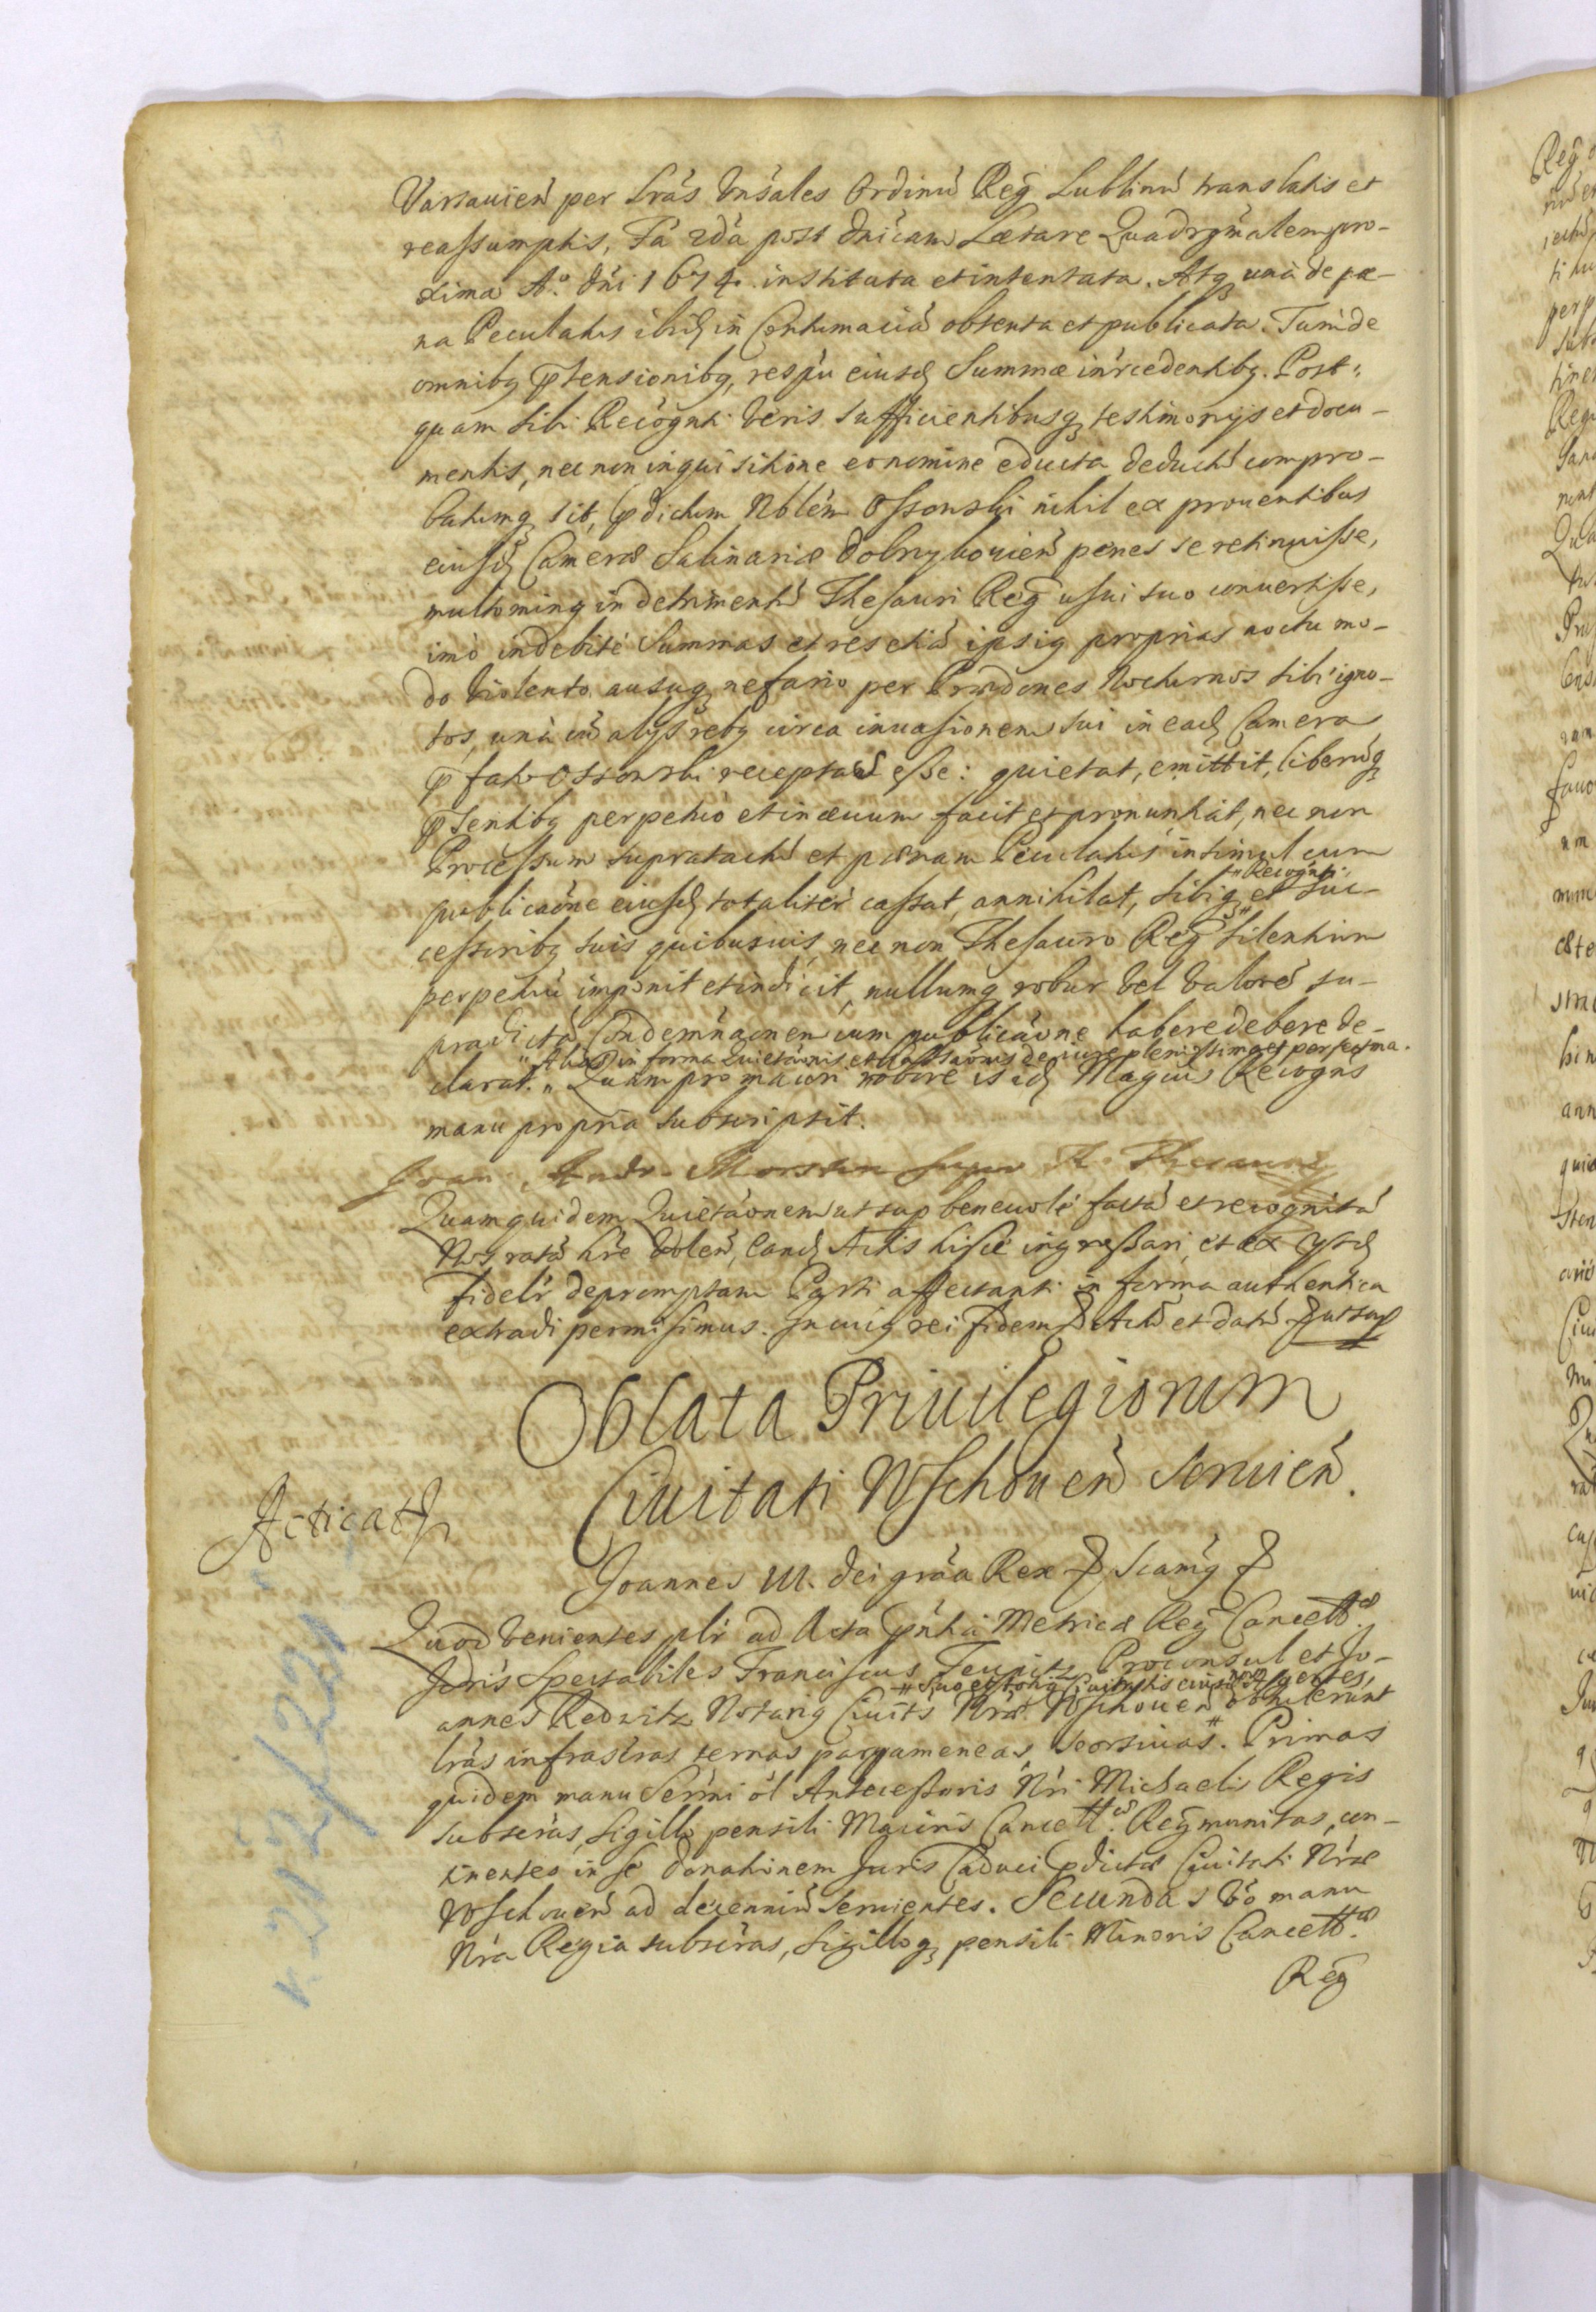 Varsavień per Lrás Vnśales Ordinū Reg̃ Lublinū translatis et
reassumptis, Fá 2dá post dńicam Lætare Quadrgm̃alem pro-
xima A.º dńi 1674. institata et intentata. Atq; unà de pæ-
na Peculatus ibid; in Contumaciā obtenta et publicata. Tum de
omnibq; p̃tensionibq;, respũ eiusd; Summæ inrcedentibq;. Post-
quam sibi Recognti veris sufficientibusq; testimonijs et docu-
mentis, nec non inquisitione eo nomine educta deductū compro-
batumq; sit, p̃dictum Nblém Ossonski nihil ex prouentibus
eiusd; Cameræ Salinariæ Dobrylouień penes se retinuisse,
multominq; in detrimentū Thesauri Reg̃ usui suo conuertisse,
imò indebitè Summas et res etiā ipsiq; proprias noctu mo-
do violento ausuq; nefario per Prædones Nocturnos sibi igno-
tos, unà cū alijs rebq; circa inuasionem sui in ead; Camera
p̃fato Ossonski receptas esse: quietat, emittit, liberūq;
p̃sentibq; perpetuò et in æuum facit et pronuntiat, nec non
Processum supratactū et pænam Peculatus insimul cum
publicaōne eiusd; totaliter cassat, annihilat, sibiq; # et suc-
# Recognti.
cessoribq; suis quibusuis, nec non Thesauro Reg̃ silentium
perpetuū imponit et indicit, nullumq; robur vel valorē su-
pradictā Condemnaōnem cum publicaōne habere debere de-
in forma Quietaōnis et Cassaōnis de iure plenissima et perfectma.
clarat. " Quam pro maiori robore is id; Magcus Recogns
manu propria subscripsit.
Joan. Andr. Morstin Supr. R. Thesaurq;
Quamquidem Quietaōnem ut sup beneuolè factā et recognitā
Nos ratā hre volen̄, eand; Actis hisce ingrossari, et ex ijsd;
fidelr depromptam Parti affectanti in forma authentica
extradi permisimus. In cuiq; rei fidem Actū et datū ut sup
Oblata Priuilegiorum
Ciuitati Wschouen̄ Seruień.
Acticat
Joannes III. Dei grāa Rex Scamq;
Quod venientes plr ad Acta p̃ntia Metricæ Reg̃ Cancellæ
Joannes III. Spectabiles Franciscus Proconsul et Jo-
# suo et totiq; Ciuitatis eiusd; noīe
annes Redwitz Notariq; Ciuits Nræ Wschouen̄ obtulerunt
lrás infrascras ternas pargameneas, seorsiuas #. Primas
quidem manu Sermi ol Antecessoris Nri Michaelis Regis
subscras, sigillo pensili Maioris Cancellæ. Reg̃ munitas, con-
tinentes in se donationem Juris Caduci p̃dictæ Ciuitati Nræ
Wschouen̄ ad decenniū seruientes. Secundas vō manu
Nra Regia subscras, sigilloq; pensili Minoris Cancellæ.
Reg̃